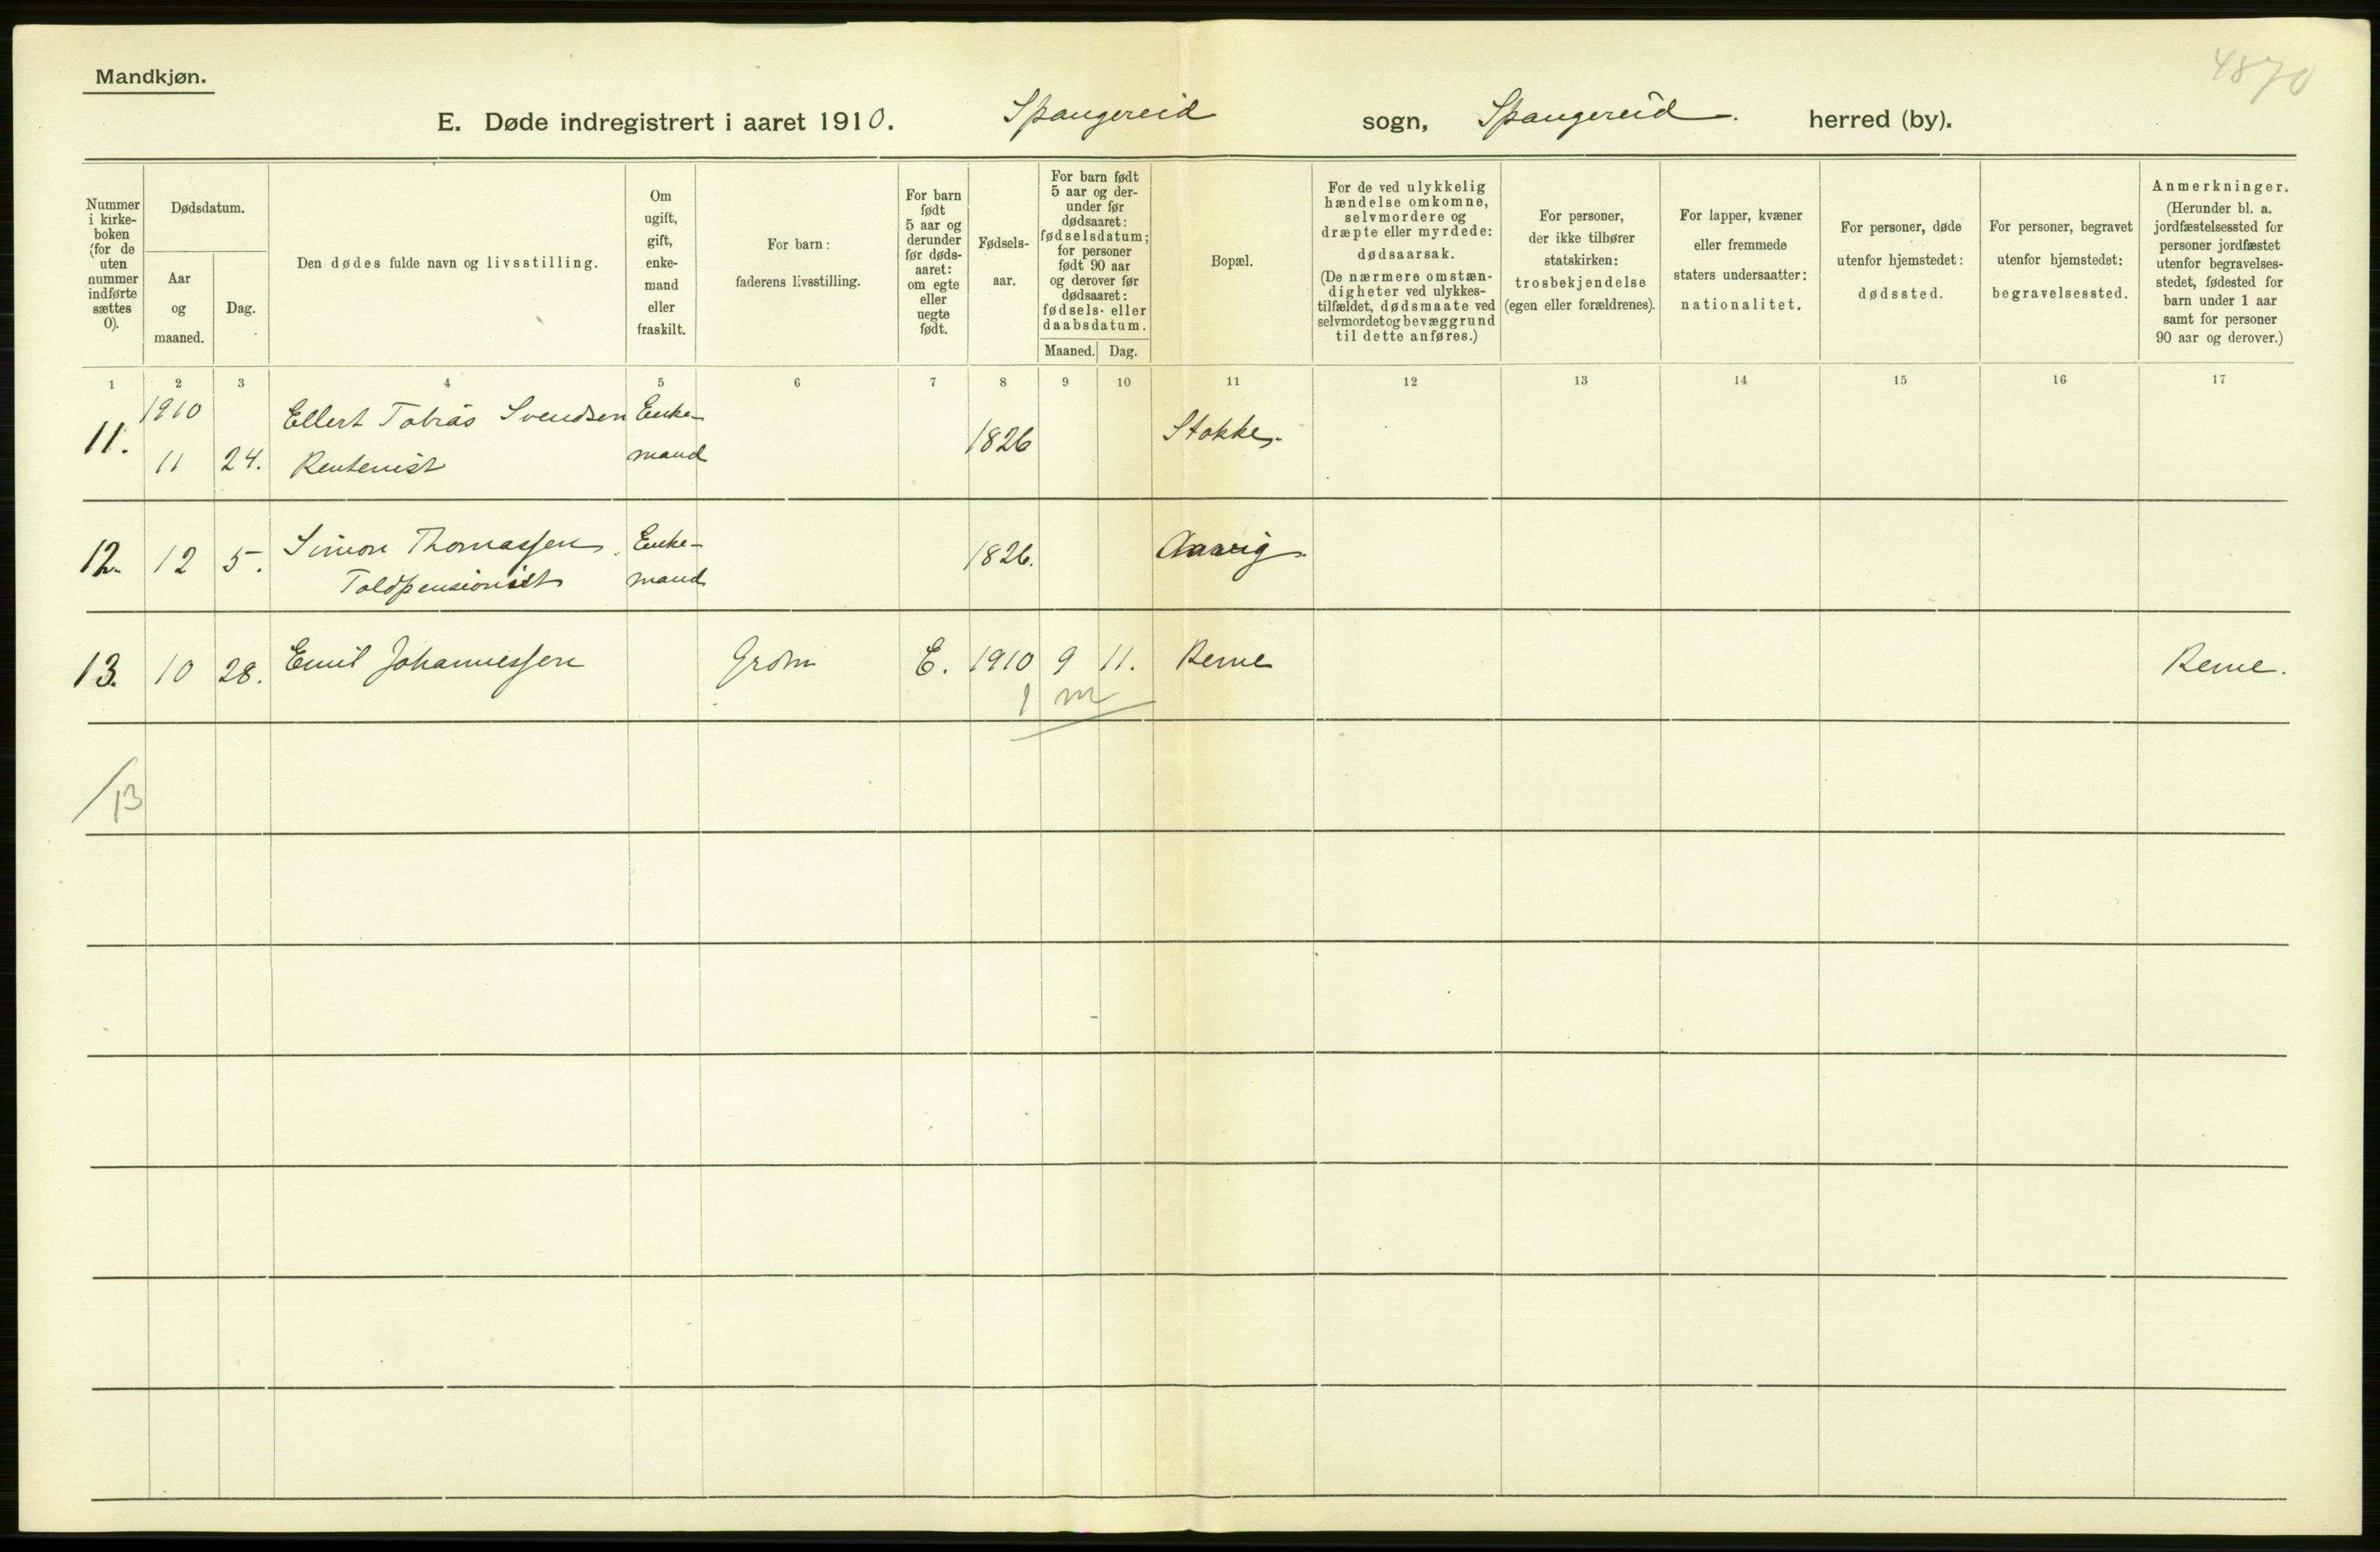 Mandkjøn.
4870
E. Døde indregistrert i aaret 1910. Spangereid sogn, Spangereid herred (by).
Nummer i kirke- boken (for de uten nummer indførte sættes 0).
Dødsdatum.
Aar og maaned.
Dag.
Den dødes fulde navn og livsstilling.
Om ugift, gift, enke- mand eller fraskilt.
For barn: faderens livsstilling.
For barn født 5 aar og derunder før døds- aaret: om egte eller uegte født.
Fødsels- aar.
For barn født 5 aar og der- under før dødsaaret: fødselsdatum; for personer født 90 aar og derover før dødsaaret: fødsels- eller daabsdatum.
Maaned. Dag.
Bopæl.
For de ved ulykkelig hændelse omkomne, selvmordere og dræpte eller myrdede: dødsaarsak. (De nærmere omstæn- digheter ved ulykkes- tilfældet, dødsmaate ved selvmordet og bevæggrund til dette anføres.)
For personer, der ikke tilhører statskirken: trosbekjendelse (egen eller forældrenes).
For lapper, kvæner eller fremmede staters undersaatter: nationalitet.
For personer, døde utenfor hjemstedet: dødssted.
For personer, begravet utenfor hjemstedet: begravelsessted.
Anmerkninger. (Herunder bl. a. jordfæstelsessted for personer jordfæstet utenfor begravelses- stedet, fødested for barn under 1 aar samt for personer 90 aar og derover.)
1 2 3 4 5 6 7 8 9 10 11 12 13 14 15 16 17
1910 Ellert Tobias Svendsen Enke-
11. 11 24. Rentenist mand 1826 Stokke.
12. 12 5. Simon Thomassen. Enke- 1826. Aavig.
Toldpensionist mand
13. 10 28. Emil Johannessen E. 1910 9 11. Reme Reme.
1 m
/13